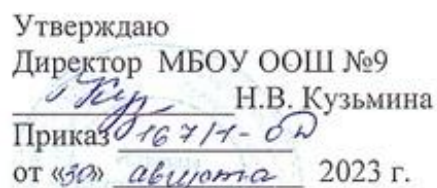 Утверждаю
Директор МБОУ ООШ №9
Н.В. Кузьмина
Приказ 167/1-од
от «30» августа 2023 г.